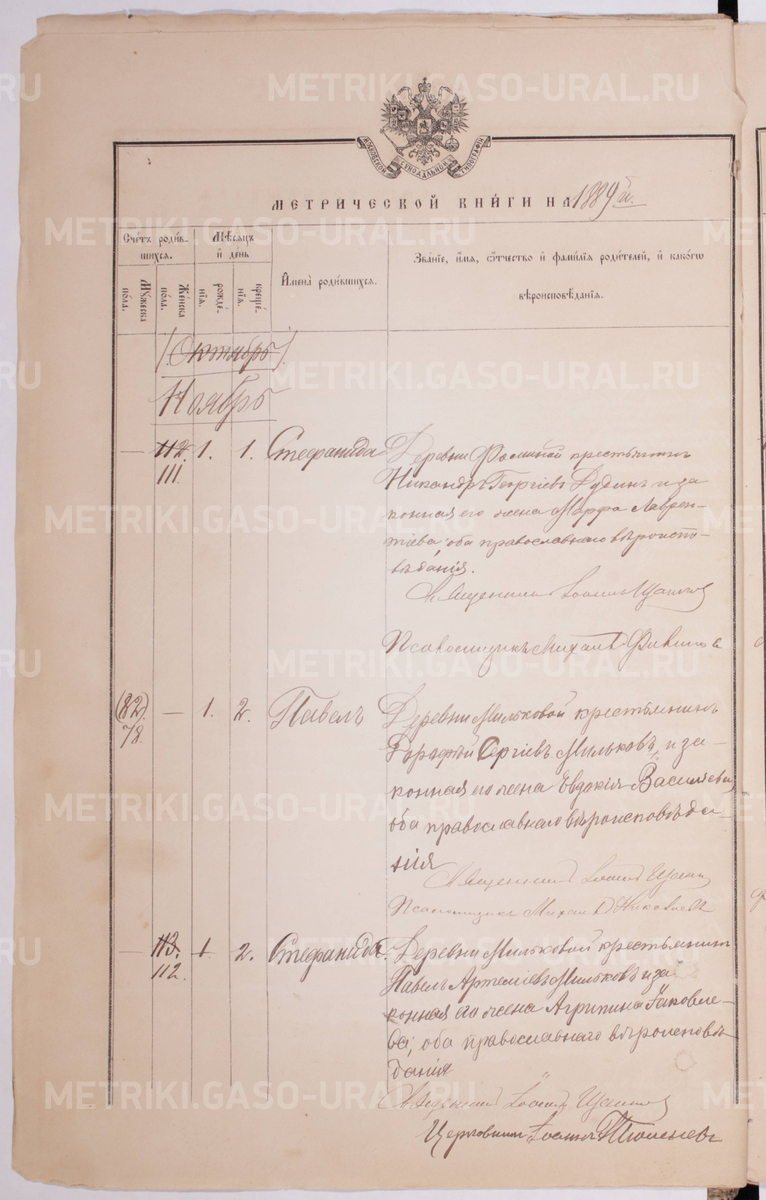 МЕТРИЧЕСКОЙ КНИГИ НА 1889 г.
Счетъ родившихся.
Мѣсяцъ и день
Имена родившихся.
Званіе, имя, отчество и фамилія родителей, и какого вѣроисповѣданія.
Мужеска пола.
Женска пола.
рожденія.
крещенія.
(Октябрь).
Ноябрь
— 112 111 1. 1. Стефанида Деревни крестьянинъ
Никандръ Георгіевъ Дудинъ и за
конная его жена Марфа Лаврен-
тіева оба православнаго вѣроиспо-
вѣданія.
Священникъ Іоаннъ
Псаломщикъ Михаилъ
(82) 78. — 1. 2. Павелъ Деревни Мильковой крестьянинъ
Сергіевъ Мильковъ, и за-
конная его жена Евдокія Васильева,
оба православнаго вѣроисповѣда-
нія
Священникъ Іоаннъ
Псаломщикъ Михаилъ
— 113. 112. 1. 2. Стефанида. Деревни Мильковой крестьянинъ
Павелъ Артеміевъ Мильковъ и за
конная его жена Агрипина Іаковле-
ва, оба православнаго вѣроисповѣ
данія
Священникъ Іоаннъ
Іоаннъ
METRIKI.GASO-URAL.RU